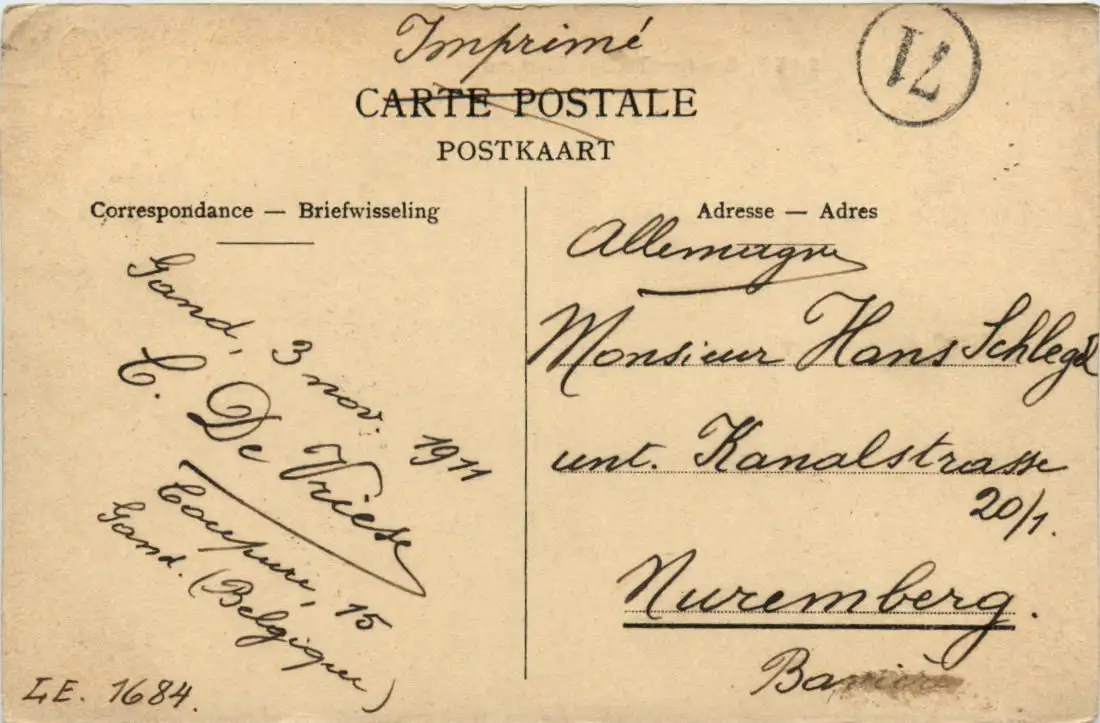 Imprimé
71
CARTE POSTALE
POSTKAART
Correspondance — Briefwisseling
Gand, 3 nov. 1911
C. De Vriese
Coupure, 15
Gand. (Belgique)
L.E. 1684.
Adresse — Adres
Allemagne
Monsieur Hans Schlegel
unt. Kanalstrasse
20/1.
Nuremberg.